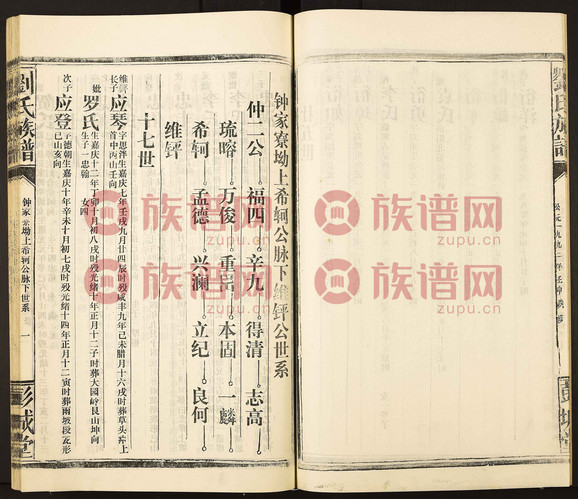 钟家寮坳上希轲公脉下维钘公世系
仲二公 福四 辛九 得清 志高
琉嵱 万俊 重 本固 一麟
希轲 孟德 兴澜 立纪 良何
维钘
十七世
维钘长子 应琴 字思泮生嘉庆七年壬戌九月廿四辰时殁咸丰九年己未腊月十六戌时葬草头 上首中丙山壬向
妣 罗氏 生嘉庆十二年丁卯十月初八戌时殁光绪十年正月十二子时葬大园岭艮山坤向 生子一忠翰 女四
次子 应登 字德朝生嘉庆十年辛未十月初七戌时殁光绪十四年正月十二寅时葬雨坡段瓦形 巳山亥向
刘氏族谱
钟家寮坳上希轲公脉下世系
一
彭城堂
族谱网
zupu.cn
族谱网
zupu.cn
族谱网
zupu.cn
族谱网
zupu.cn